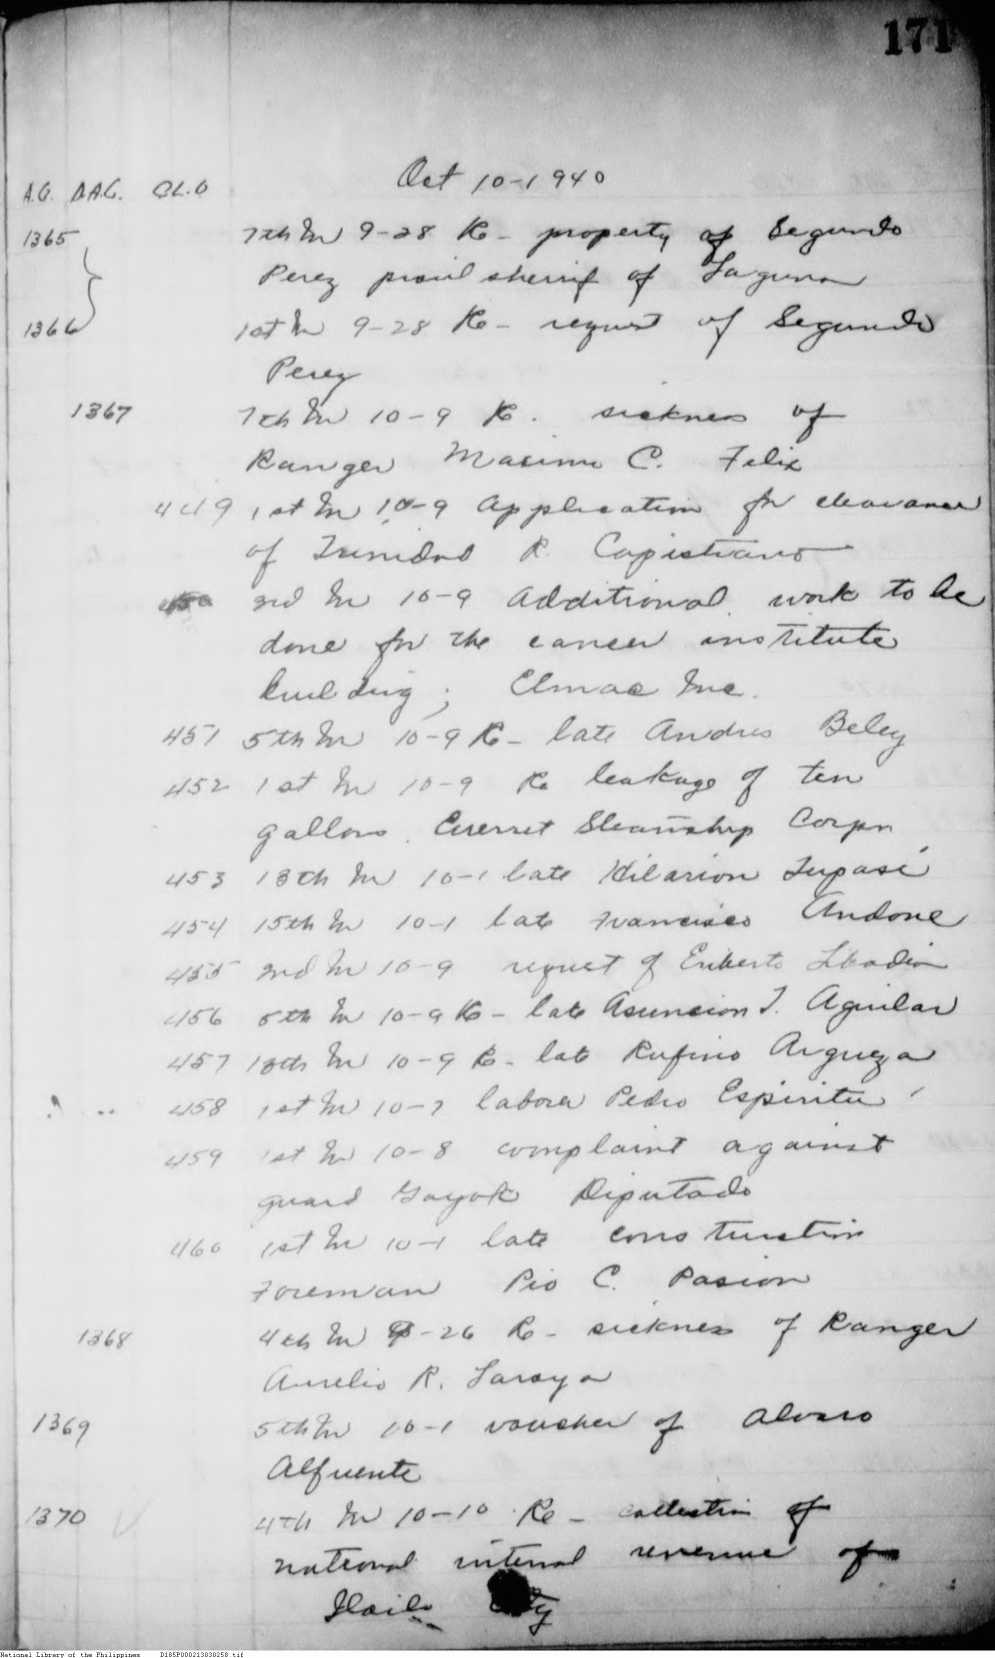 171
Oct 10-1940
A.G. D.A.G. CL.O
1365 7th In 9-28 Re- property of Segundo
Perez provil sherrif of Laguna
1366 1st In 9-28 Re- request of Segundo
Perez
1367 7th In 10-9 Re. sickness of
Ranger Maximo C. Felix
449 1st In 10-9 Application for clearance
of Trinidad R. Capistrano
450 3rd In 10-9 Additional work to be
done for the cancer institute
building; Elmac Inc.
451 5th In 10-9 Re- late Andres Beley
452 1st In 10-9 Re leakage of ten
gallons. Everret Steamship Corpn
453 13th In 10-1 late Hilarion Tupasi
454 15th In 10-1 late Francisco Andone
455 2nd In 10-9 request of Eriberto Libadia
456 5th In 10-9 Re- late Asuncion T. Aguilar
457 13th In 10-9 Re- late Rufino Argueza
458 1st In 10-7 laborer Pedro Espiritu
459 1st In 10-8 complaint against
guard Diputado
460 1st In 10-1 late construction
Foreman Pio C. Pasion
1368 4th In 9-26 Re- sickness of Ranger
Aurelio R. Laraya
1369 5th In 10-1 voucher of Alvaro
Alfuente
1370 4th In 10-10 Re- collection of
national internal revenue of
Iloilo City
National Library of the Philippines D185P000213030258.tif